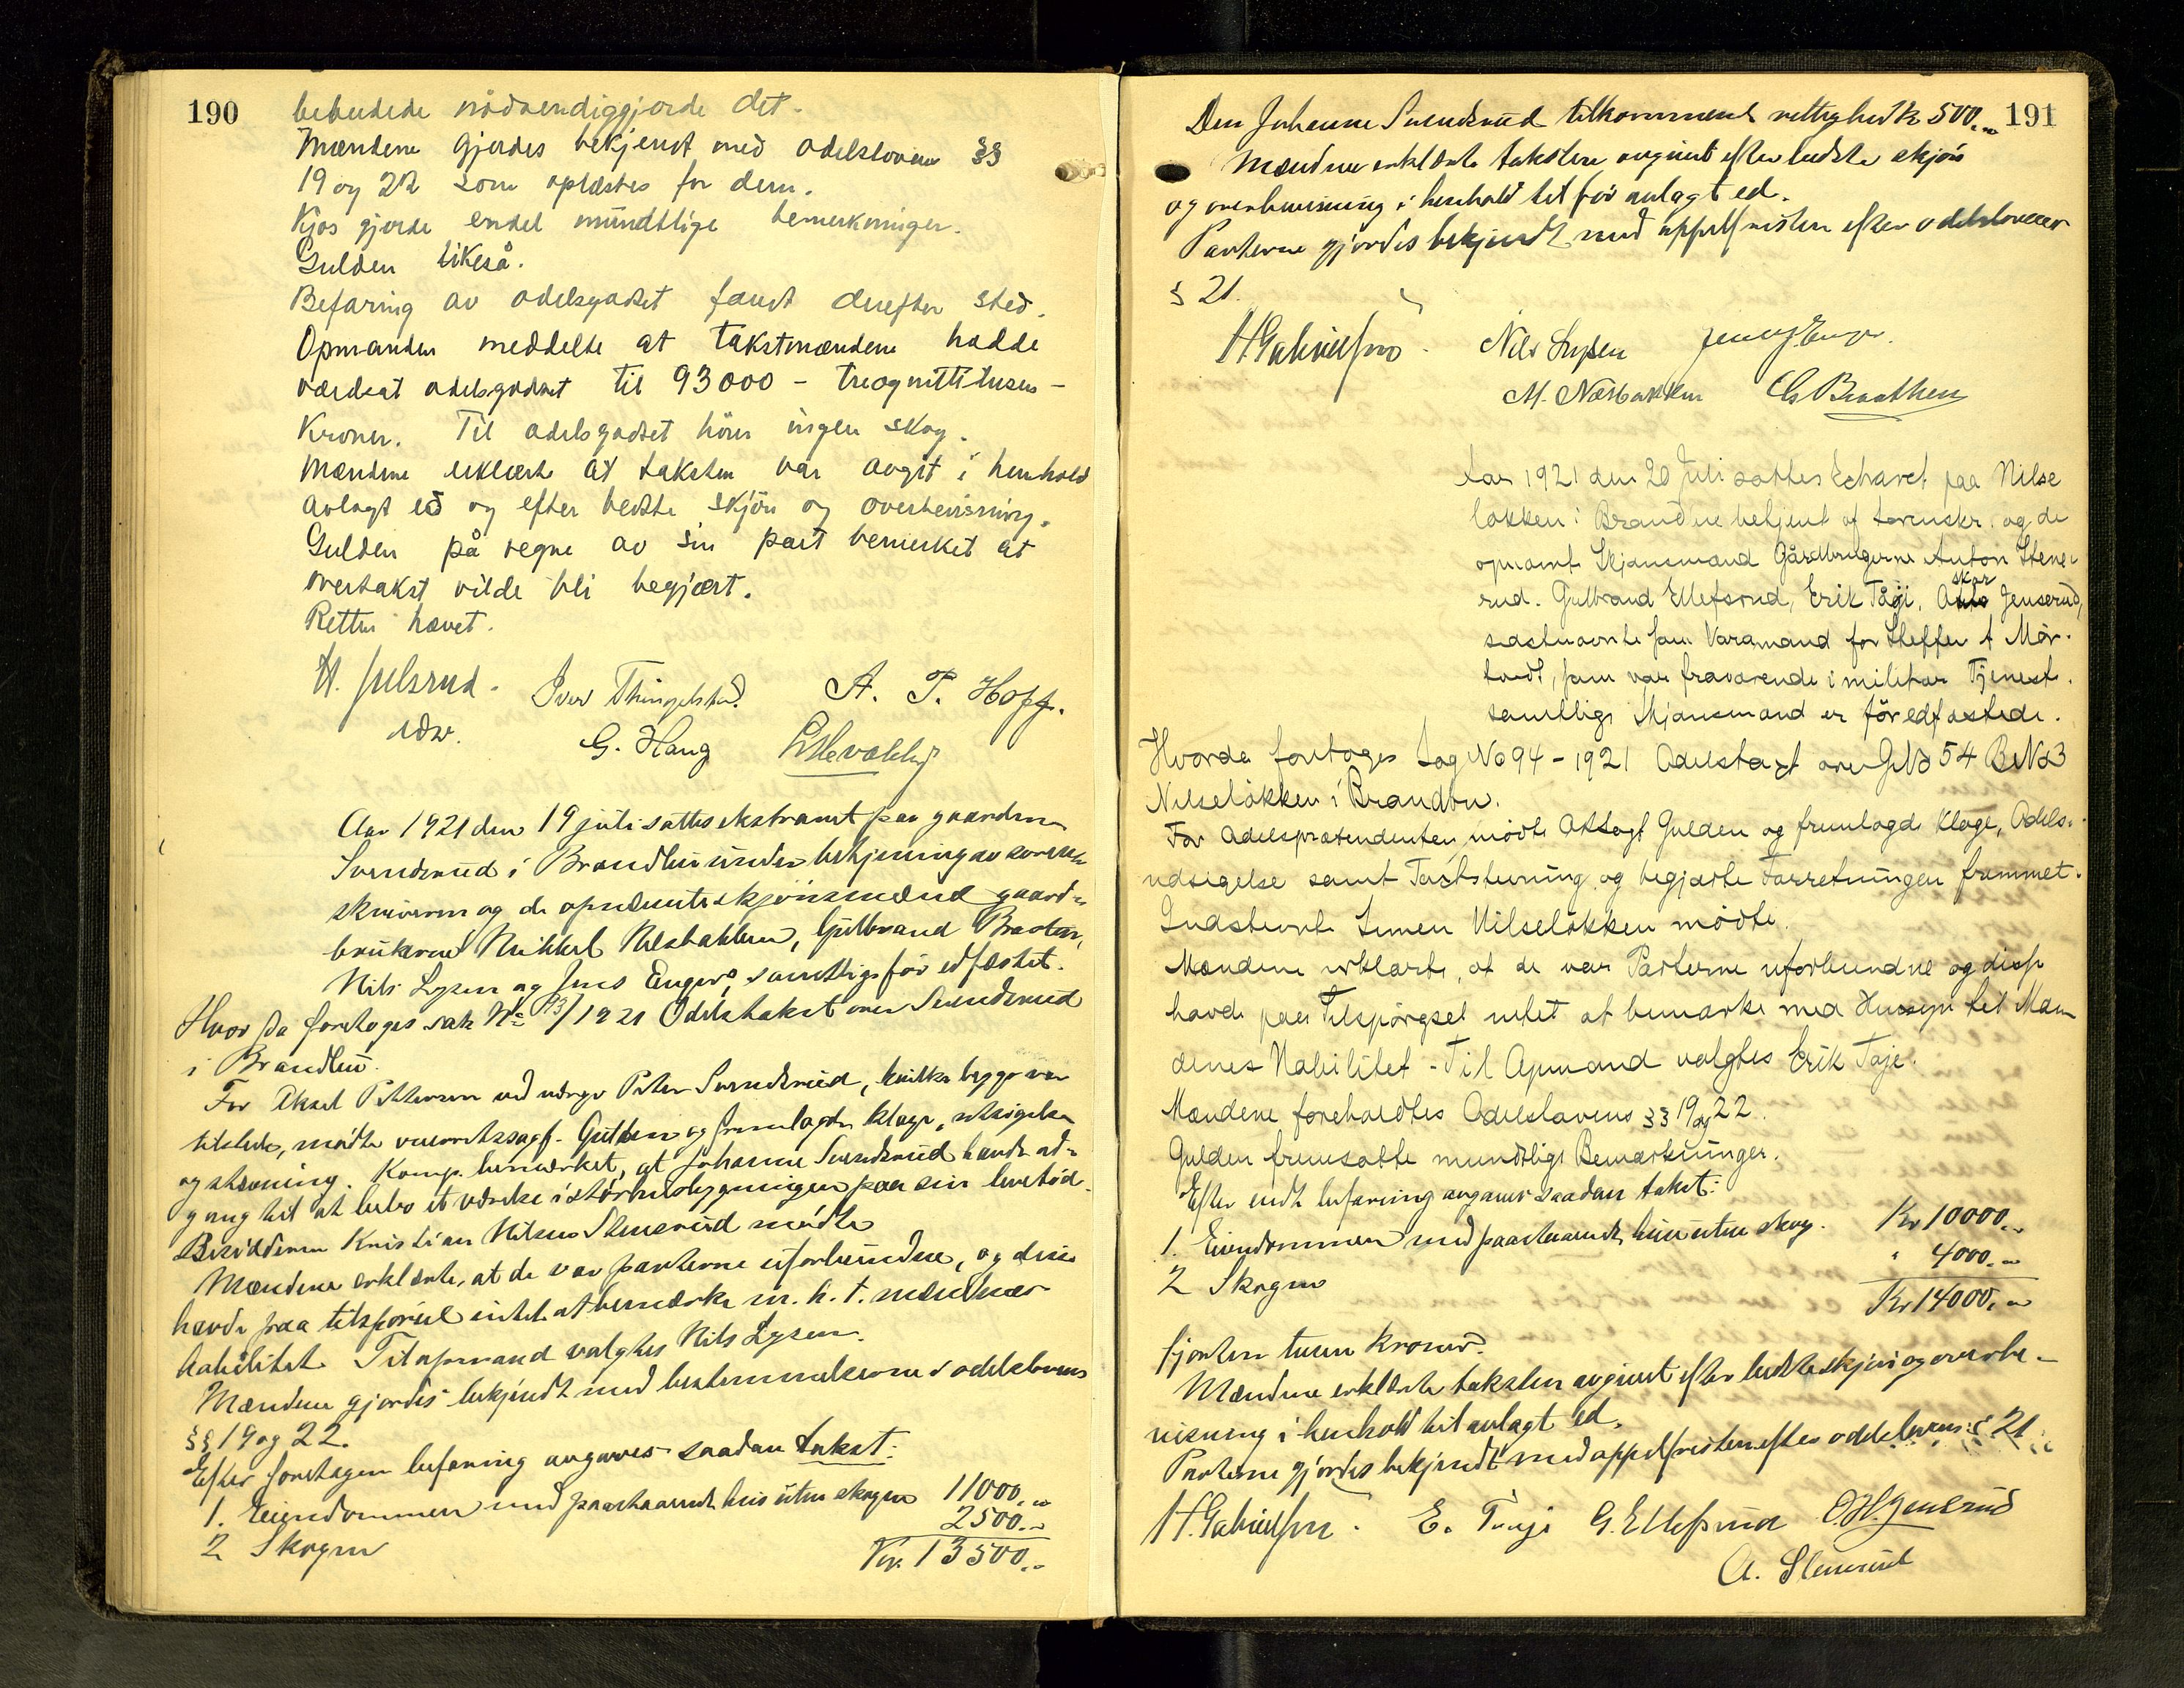 190
bebudede nödvendiggjorde det.
Mændene gjordes bekjent med odelsloven §§
19 og 22 som oplæstes for dem.
Kjos gjorde endel mundtlige bemerkninger.
Gulden likeså.
Befaring av odelsgodset fandt derefter sted.
Opmanden meddelte at takstmændene hadde
værdsat odelsgodset til 93000 - treognittitusen -
Kroner. Til odelsgodset hörer ingen skog.
Mændene erklærte at taksten var avgit i henhold
avlagt ed og efter bedste skjön og overbevisning.
Gulden på vegne av sin part bemerket at
overtakst vilde bli begjært.
Retten hævet.
H. Julsrud. Iver Thingelstad. A. P. Hoff.
edv. G. Haug
Aar 1921 den 19 juli sattes ekstraret paa gaarden
Svendsrud i Brandbu under betjening av soren-
skriveren og de opnævnte skjönsmænd gaard-
brukerne Mikkel Næsbakken, Gulbrand Braaten,
Nils Lysen og Jens Enger, samtlige för edfæstet.
Hvor da foretoges sak No 93/1921 Odelstakst over Svendsrud
i Brandbu.
For Aksel Pettersen ved værge Peter Svendsrud, hvilke begge var
tilstede, mödte overretssagf. Gulden og fremlagde klage, utsigelse
og stevning. Komp. bemærket, at Johanne Svendsrud havde ad-
gang til at bebo et værelse i störhusbygningen paa sin levetid.
Besidderen Kristian Nilsen Stenerud mödte
Mændene erklærte, at de var parterne uforbundne, og disse
havde paa tilspörsel intet at bemærke m. h. t. mændenes
habilitet. Til opmand valgtes Nils Lysen.
Mændene gjordes bekjendt med bestemmelserne i odelslovens
§§ 19 og 22.
Efter foretagen befaring avgaves saadan takst:
1. Eiendommen med paastaaende hus uten skogen 11000,-
2 Skogen 2500.-
Kr. 13500.-
191
Den Johanne Svendsrud tilkommende rettighet kr 500,-
Mændene erklærte taksten avgivet efter bedste skjön
og overbevisning i henhold til för avlagt ed.
Parterne gjordes bekjendt med appelfristen efter odelsloven
§ 21.
H. Gabrielsen. Nils Lysen Jens Enger.
M. Næsbakken G. Braathen
Aar 1921 den 20 Juli sattes Extraret paa Nilse
lökken i Brandbu betjent af Sorenskr. og de
opnævnte Skjönsmænd Gårdbrugerne Anton Stene-
rud. Gulbrand Ellefsrud, Erik Tåje, Oskar Jenserud,
sidstnævnte som Varamand for Steffen A Mör-
tvedt, som var fraværende i militær Tjeneste.
samtlige Skjönsmænd er för edfæstede.
Hvorda foretoges Sag No 94 - 1921 Odelstaxt over GNo 54 BrNo 3
Nilselökken i Brandbu.
For Odelsprætendenten mödte O.R.Sagf Gulden og fremlagde Klage, Odels-
udsigelse samt Taxtstevning og begjærte Forretningen fremmet.
Indstevnte Simen Nilselökken mödte.
Mændene erklærte, at de var Parterne uforbundne og disse
havde paa Tilspörgsel intet at bemærke med Hensyn til Mæn
denes Habilitet - Til Opmand valgtes Erik Taje.
Mændene foreholdtes Odelslovens §§ 19 og 22.
Gulden fremsatte mundtlige Bemærkninger.
Efter endt befaring avgaves saadan takst:
1. Eiendommen med paastaaende hus uten skog. Kr 10000.-
2 Skogen " 4000.-
Kr 14000.-
fjorten tusen kroner.
Mændene erklærte taksten avgivet efter bedste skjön og overbe-
visning i henhold til avlagt ed.
Parterne gjordes bekjendt med appelfristen efter odelslovens § 21.
H. Gabrielsen. E. Taaje G. Ellefsrud O.H. Jensrud
A. Stenerud